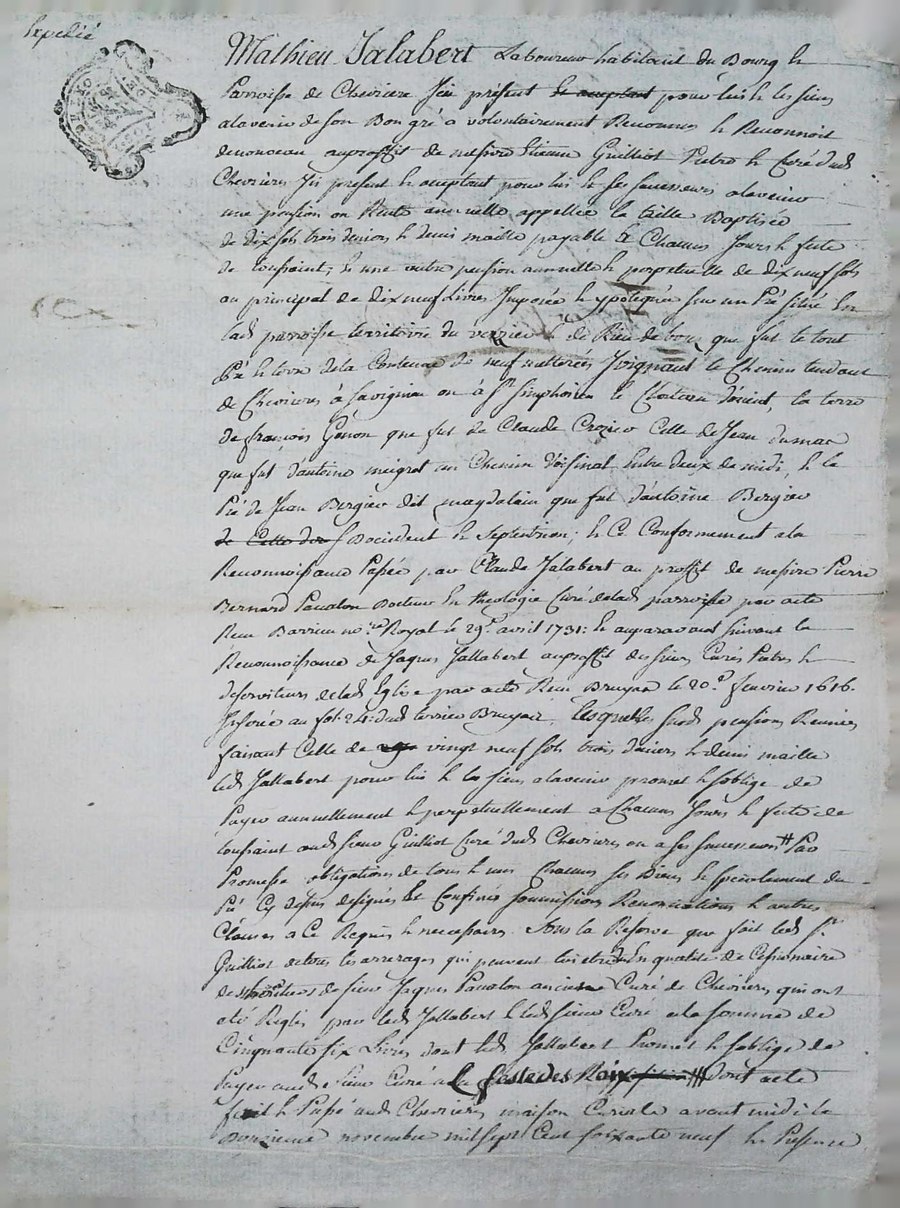 Expedié
Mathieu Jalabert Laboureur habitant du Bourg &
Parroisse de Chevriere Icy présent le acceptant pour lui & les siens
alavenir de son Bon gré a volontairement Reconnu & Reconnoit
denouveau auproffit de messire Etienne Guilliot Pretre & Curé dud
Chevrieres Icy présent & acceptant pour lui & ses successeurs alavenir
une pension ou Rente annuelle appellée la taille Baptisée
de dix sols trois deniers & demis maille payable a Chacuns Jours & feste
de toussaints, & une autre pension annuelle & perpetuelle de dix neuf sols
au principal de dix neuf Livres Imposée & ypotequée sur un Pré situé en
lad parroisse territoire du verzier & de Rieu de bou que fut le tout
Pré & terre dela Contenue de neuf metterées Joignant le Chemin tendant
de Chevrieres à Savigneu ou à St Simphorien le Chateau d'orient, la terre
de françois Genon que fut de Claude Crozier Celle de Jean dumas
que fut d'antoine meigrot un Chemin d'oisinal entre deux de midi, & le
Pré de Jean Bergier dit magdalain que fut d'antoine Bergier
de Celle d'occident & septentrion; & Ce Conformement ala
Reconnoissance Passée par Claude Jalabert au proffit de messire Pierre
Bernard Paualon Docteur en theologie Curé delad parroisse par acte
Reçu Barrieu nore Royal le 29e avril 1731: & auparavant suivant la
Reconnoissance de Jaques Jallabert auproffit des sieurs Curés Pretres &
desserviteurs delad Eglise par acte Reçu Bruyas le 20e fevrier 1616.
Inserée au fol: 24: dud terrier Bruyas, lesquelles susd pensions Reunies
faisant Celle de vingt neuf sols trois deniers & demi maille
led Jallabert pour lui & les siens alavenir promet & s'oblige de
Payer annuellement & perpetuellement a Chacuns Jours & feste de
toussaint aud sieur Guilliot Curé dud Chevrieres ou a ses successeurs # Par
Promesse obligations de tous & uns Chacuns ses Biens & specialement du
Pré Cy dessus designés & Confinés soumissions Renonciations & autres
Clauses a Ce Requis & necessaires. Sous la Reserve que fait led Sr
Guilliot detous les arrerages qui peuvent lui etre dus En qualité de Cessionnaire
des heritiers de sieur Jaques Paualon ancien Curé de Chevrieres qui ont
eté Reglés par led Jallabert & led sieur Curé ala somme de
Cinquante six Livres dont led Jallabert Promet & s'oblige de
Payer aud sieur Curé a la feste des Roix # Dont acte
fait & Passé aud Chevrieres maison Curiale avant midi le
novembre mil sept Cent soixante neuf En Presence